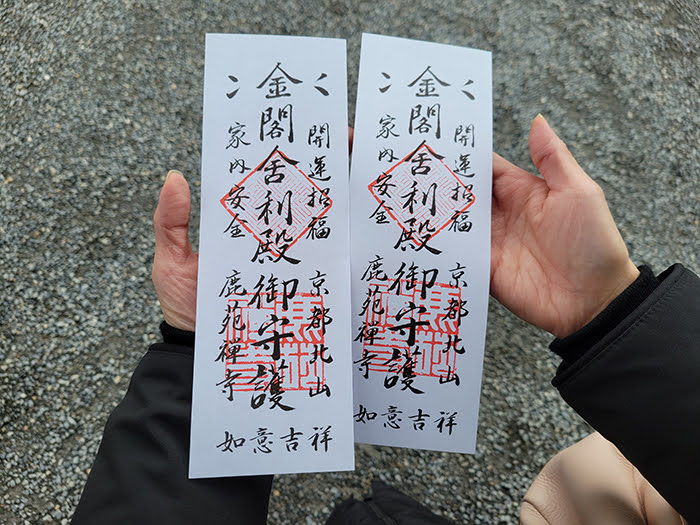 開運招福
京都北山
金閣舎利殿御守護
家内安全
鹿苑禪寺
如意吉祥
開運招福
京都北山
金閣舎利殿御守護
家内安全
鹿苑禪寺
如意吉祥